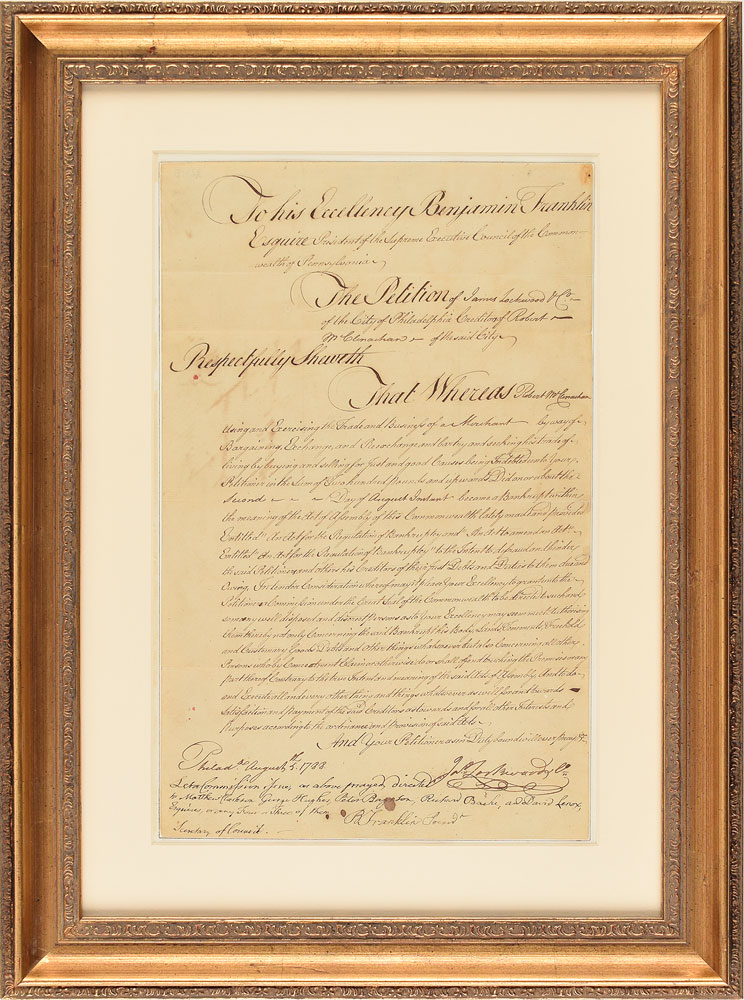 To his Excellency Benjamin Franklin
Esquire President of the Supreme Executive Council of the Common
wealth of Pennsylvania
The Petition of James Lockwood & Co
of the City of Philadelphia Creditors of Robert
McClenachan of the said City
Respectfully Sheweth
That Whereas Robert McClenachan
Using and Exercising the Trade and Business of a Merchant by way of
Bargaining, Exchange, and Rexchange, and barter, and seeking his trade of
living by buying and selling for just and good Causes being Indebted unto Your
Petitioner in the Sum of Two hundred Pounds and upwards Did on or about the
Second Day of August Instant become a Bankrupt within
the meaning of the Act of Assembly of this Commonwealth lately made and provided
Entitled "An Act for the Regulation of Bankruptcy and" An Act to amend an Act
Entitled An Act for the Regulation of Bankruptcy" to the Intent to defraud and hinder
the said Petitioner and others his Creditors of their just Debts and Duties to them due and
Owing. For tender Consideration whereof may it please Your Excellency to grant unto the
Petitioner a Commission under the Great Seal of the Commonwealth to be directed to such and
so many well disposed and discreet Persons as to your Excellency may seem meet authorising
them thereby not only Concerning the said Bankrupt his Body, Lands, Tenements, Freehold
and Customary Goods Debts and other things whatsoever but also Concerning all other
Persons who by Concealment Claim or otherwise do or shall offend touching the Premises or any
part thereof Contrary to the true Intent and meaning of the said Acts of Assembly And to do
and Execute all and every other thing and things whatsoever as well for and towards
Satisfaction and payment of the said Creditors as towards and for all other Intents and
Purposes according to the ordinance and Provision of said Acts
And Your Petitioner as in Duty bound will ever pray &c
Philada August 5th 1788.
Jas Lockwood & Co
Let a Commission issue, as above prayed, directed
to Matthew Clarkson George Hughes, Peter Baynton, Richard Bache, and David Lenox,
Esquires, or any Four or Three of them
B Franklin Presidt
Secretary of Council.